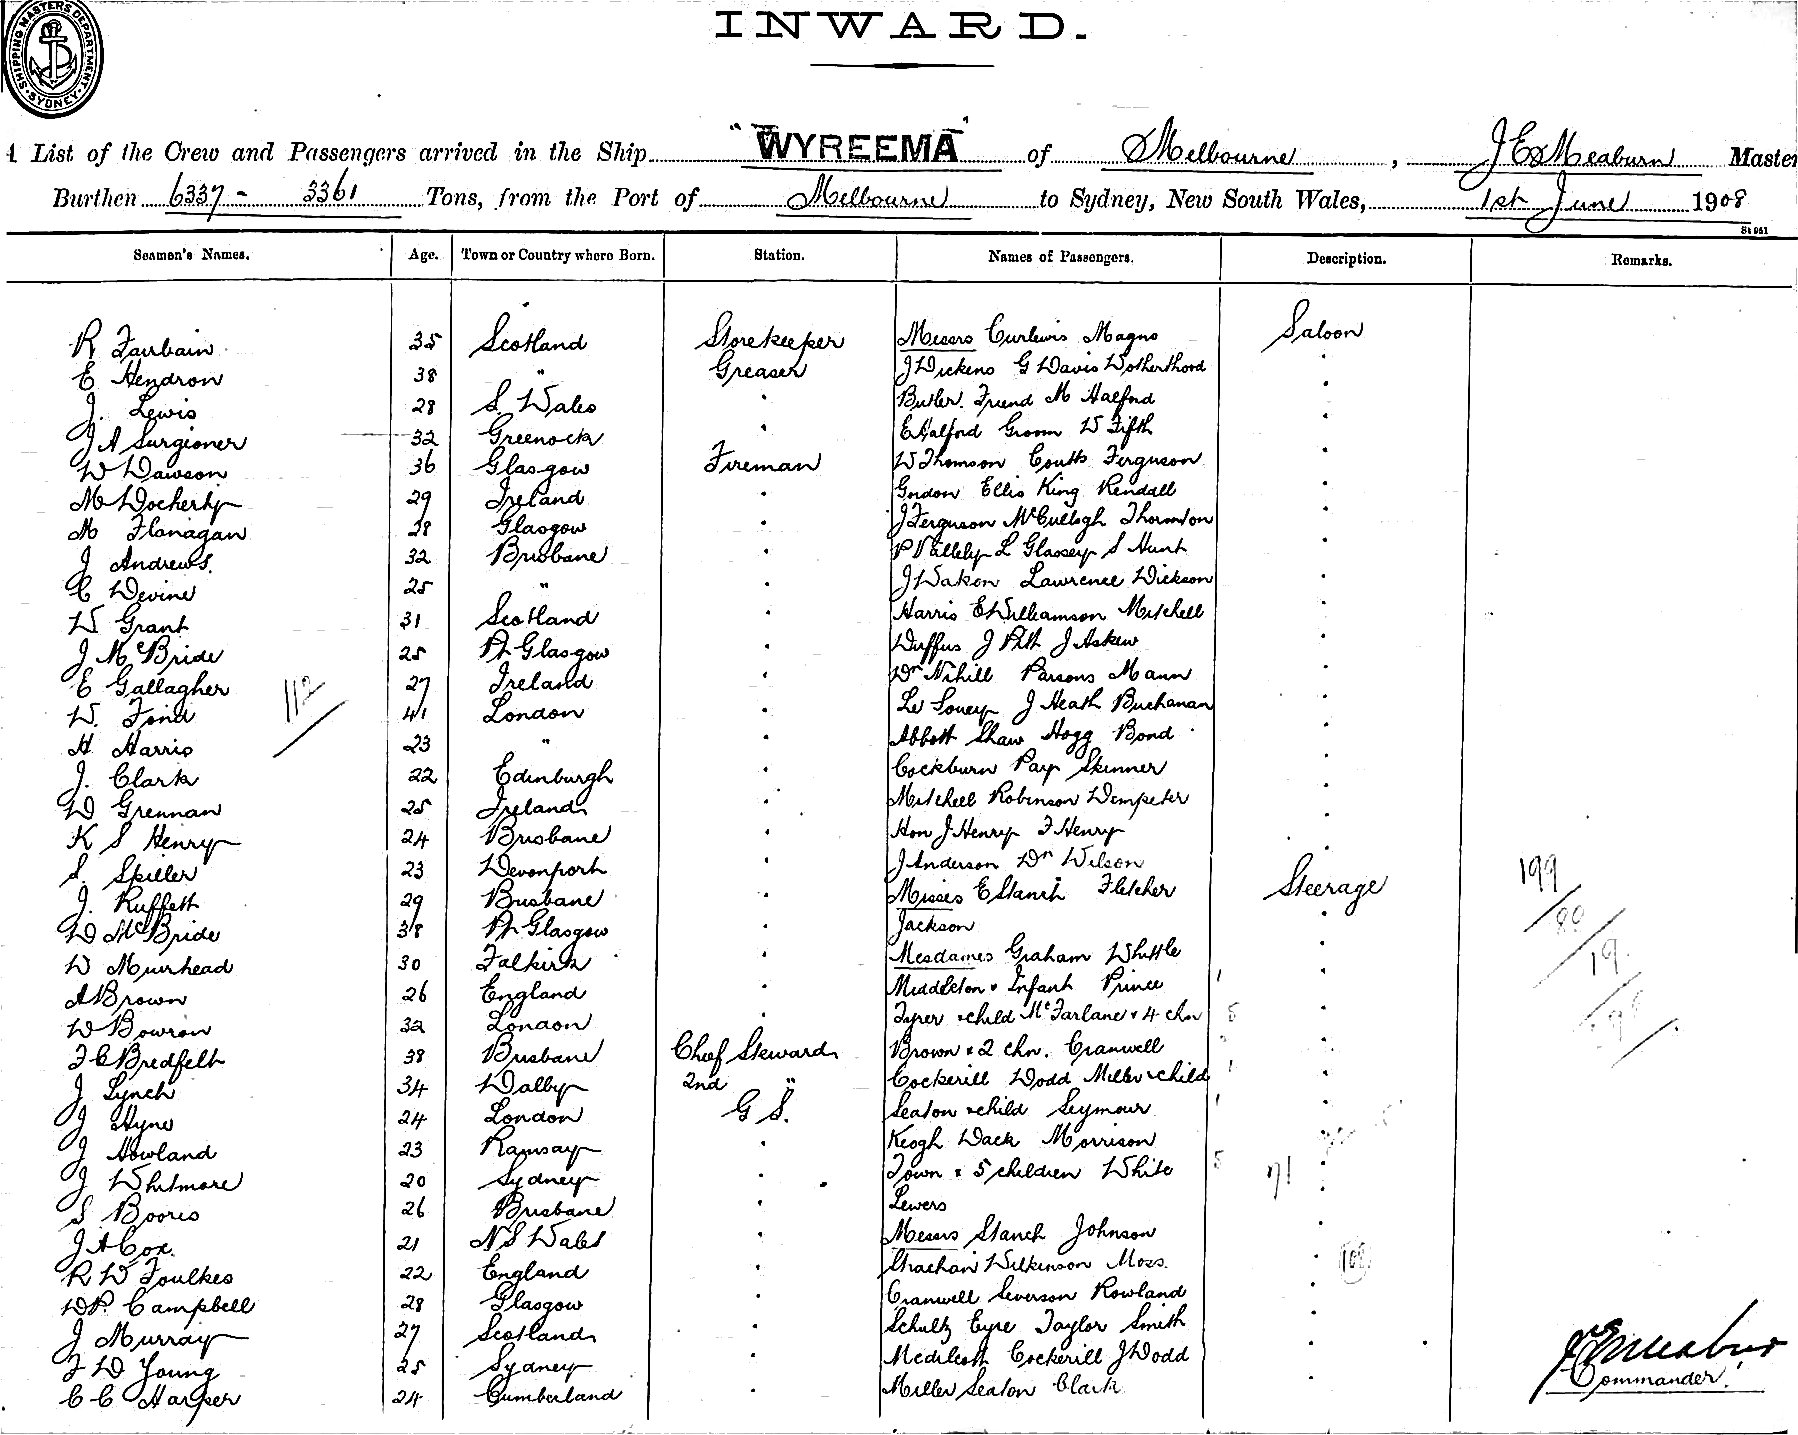 SHIPPING MASTERS DEPARTMENT
SYDNEY
INWARD.
List of the Crew and Passengers arrived in the Ship "WYREEMA" of Melbourne, J E Meaburn Master
Burthen 6337 - 3361 Tons, from the Port of Melbourne to Sydney, New South Wales, 1st June 1908
St 951
Seamen's Names. Age. Town or Country where Born. Station. Names of Passengers. Description. Remarks.
R Fairbain 35 Scotland Storekeeper Messrs Curlewis Magno Saloon
E Hendron 38 " Greaser J Dickens G Davis
J. Lewis 28 S. Wales Butler. Friend M Halford
J A Surgioner 32 Greenock E Halford Groom W Fifth
W Dawson 36 Glasgow Fireman W Thomson Coutts Ferguson
M Docherty 29 Ireland Gordon Ellis King Kendall
M Flanagan 28 Glasgow J Ferguson McCullogh Thornton
J Andrews. 32 Brisbane L Glassey S Hunt
C Devine 25 " Lawrence Dickson
W Grant 31 Scotland Harris E Williamson Mitchell
J McBride 25 Pt Glasgow Duffus J Pitt J Askew
E Gallagher 27 Ireland Dr Nihill Parsons Mann
112
W. Ford 41 London Le Souey J Heath Buchanan
H Harris 23 " Abbott Shaw Hogg Bond
J. Clark 22 Edinburgh Cockburn Pay Skinner
W Grennan 25 Ireland Mitchell Robinson Dempster
K S Henry 24 Brisbane Hon J Henry F Henry
S. Spiller 23 Devonport J Anderson Dr Wilson
199
J. Ruffett 29 Brisbane Misses E Stanch Fletcher Steerage
80
W McBride 38 Pt Glasgow Jackson
19
W Muirhead 30 Falkirk Mesdames Graham Whittle
A Brown 26 England Middleton & Infant Prince 1
W Bowron 32 London Tyrer & child McFarlane & 4 chn 5
F C Bredfelt 38 Brisbane Chief Steward Brown & 2 chn. Cranwell
J Lynch 34 Dalby 2nd " Cockerill Dodd Miller & child 1
J Hyne 24 London G S. Seaton & child Seymour 1
J Howland 23 Ramsay Keogh Dack Morrison
J Whitmore 20 Sydney Town & 5 children White 5 71
S Booris 26 Brisbane Lewers
J A Cox. 21 N S Wales Messrs Stanch Johnson
R W Foulkes 22 England Strachan Wilkinson Moss. 108
W P. Campbell 28 Glasgow Cranwell Severson Rowland
J Murray 27 Scotland Schultz Eyre Taylor Smith
F W Young 25 Sydney Medlicott Cockerill J Dodd
J E Meaburn
C C Harper 24 Cumberland Miller Seaton Clark
Commander.